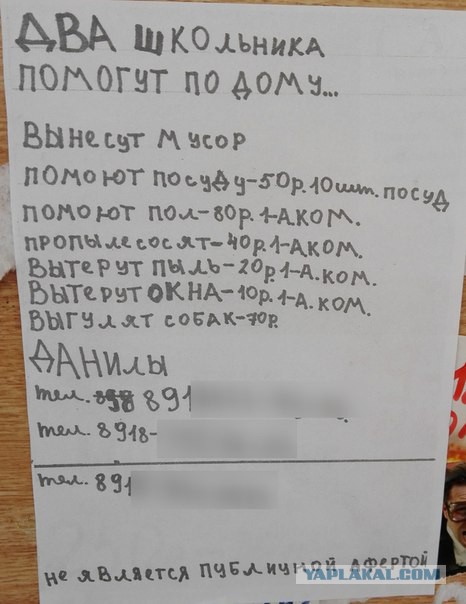 ДВА ШКОЛЬНИКА
ПОМОГУТ ПО ДОМУ...
ВЫНЕСУТ МУСОР
ПОМОЮТ ПОСУДУ-50р.10шт. ПОСУД
ПОМОЮТ ПОЛ-80р.1-А.КОМ.
ПРОПЫЛЕСОСЯТ-40р.1-А.КОМ.
ВЫТЕРУТ ПЫЛЬ-20р.1-А. КОМ.
ВЫТЕРУТ ОКНА-10р.1-А. КОМ.
ВЫГУЛЯТ СОБАК-70р.
ДАНИЛЫ
тел. 891
тел. 8918-
тел. 891
НЕ ЯВЛЯЕТСЯ ПУБЛИЧНОЙ АФЕРТОЙ
YAPLAKAL.COM